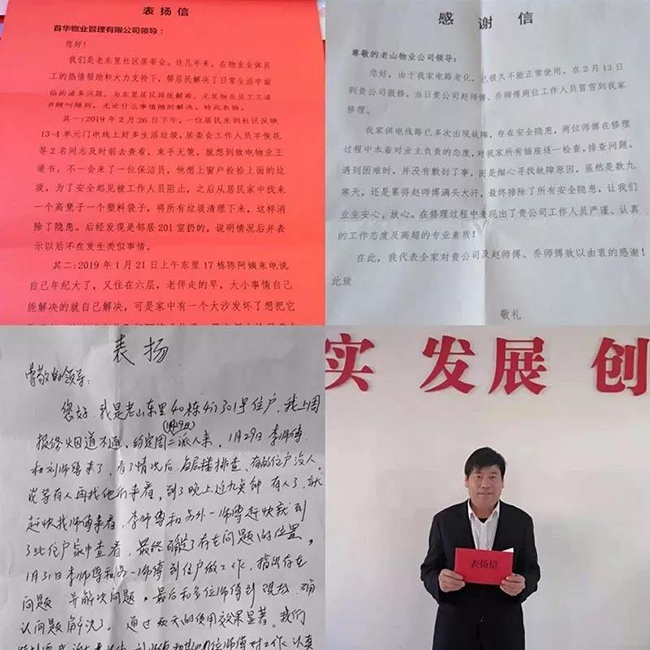 表扬信
首华物业管理有限公司领导：
您好！
我们是老东里社区居委会。这几年来，在物业全体员
工的热情帮助和大力支持下，帮居民解决了日常生活中面
临的诸多问题，为东里居民排忧解难。尤其物业员工工
随叫随到，无论什么事情随时解决。特此表扬。
其一:2019 年 2 月 26 日下午，一位居民来到社区反映
13-4 单元门电线上好多生活垃圾，居委会工作人员羊俊花
等 2 名同志及时前去查看，束手无策，就想到放电物业王
道书，不一会来了一位保洁员，他想上窗户捡掉上面的垃
圾，为了安全起见被工作人员阻止，之后从居民家中找来
一个高凳子一个塑料袋子，将所有垃圾清理下来，这样消
除了隐患。后经发现是邻居 201 室扔的，说明情况后并表
示以后不在发生类似事情。
其二:2019 年 1 月 21 日上午东里 17 栋陈阿姨来电说
自己年纪大了，又住在六层，老停走的早，大小事情自己
能解决的就自己解决，可是家中有一个大沙发坏了想把它
感谢信
尊敬的老山物业公司领导：
您好，由于我家电路老化，已很久不能正常使用。在 2 月 13 日
到贵公司报修，当日贵公司赵师傅、乔师傅两位工作人员冒雪到我家
修理。
我家供电线路已多次出现故障，存在安全隐患，两位师傅在修理
过程中本着对业主负责的态度，对我家所有插座逐一检查，排查问题。
遇到困难时，并没有敷衍了事，而是细心寻找故障原因，虽然是数九
寒天，还是累得赵师傅满头大汗，最终排除了所有安全隐患，让我们
业主安心、放心。在修理过程中表现出了贵公司工作人员严谨、认真
的工作态度及高超的专业素质！
在此，我代表全家对贵公司及赵师傅、乔师傅致以由衷的感谢！
此致
敬礼
表扬
尊敬的领导：
您好，我是老山东里40栋4门301号住户，我上周
报修烟道不通，约定周二派人来，1月29日李师傅
和刘师傅来了，看了情况后，各层楼排查，有的住户没人，
说等有人再找他们来看，到了晚上近九点钟 有人了，就
赶快找师傅来看，李师傅和另外一师傅赶快找到
了此住户家中查看，最终确定了存在问题的位置。
1月31日李师傅和另一师傅到住户做工作，指出存在
问题 并解决问题，最后和多位师傅到现场，确
认问题解决了。通过数天的使用效果显著。我们
实 发展 创
表扬信